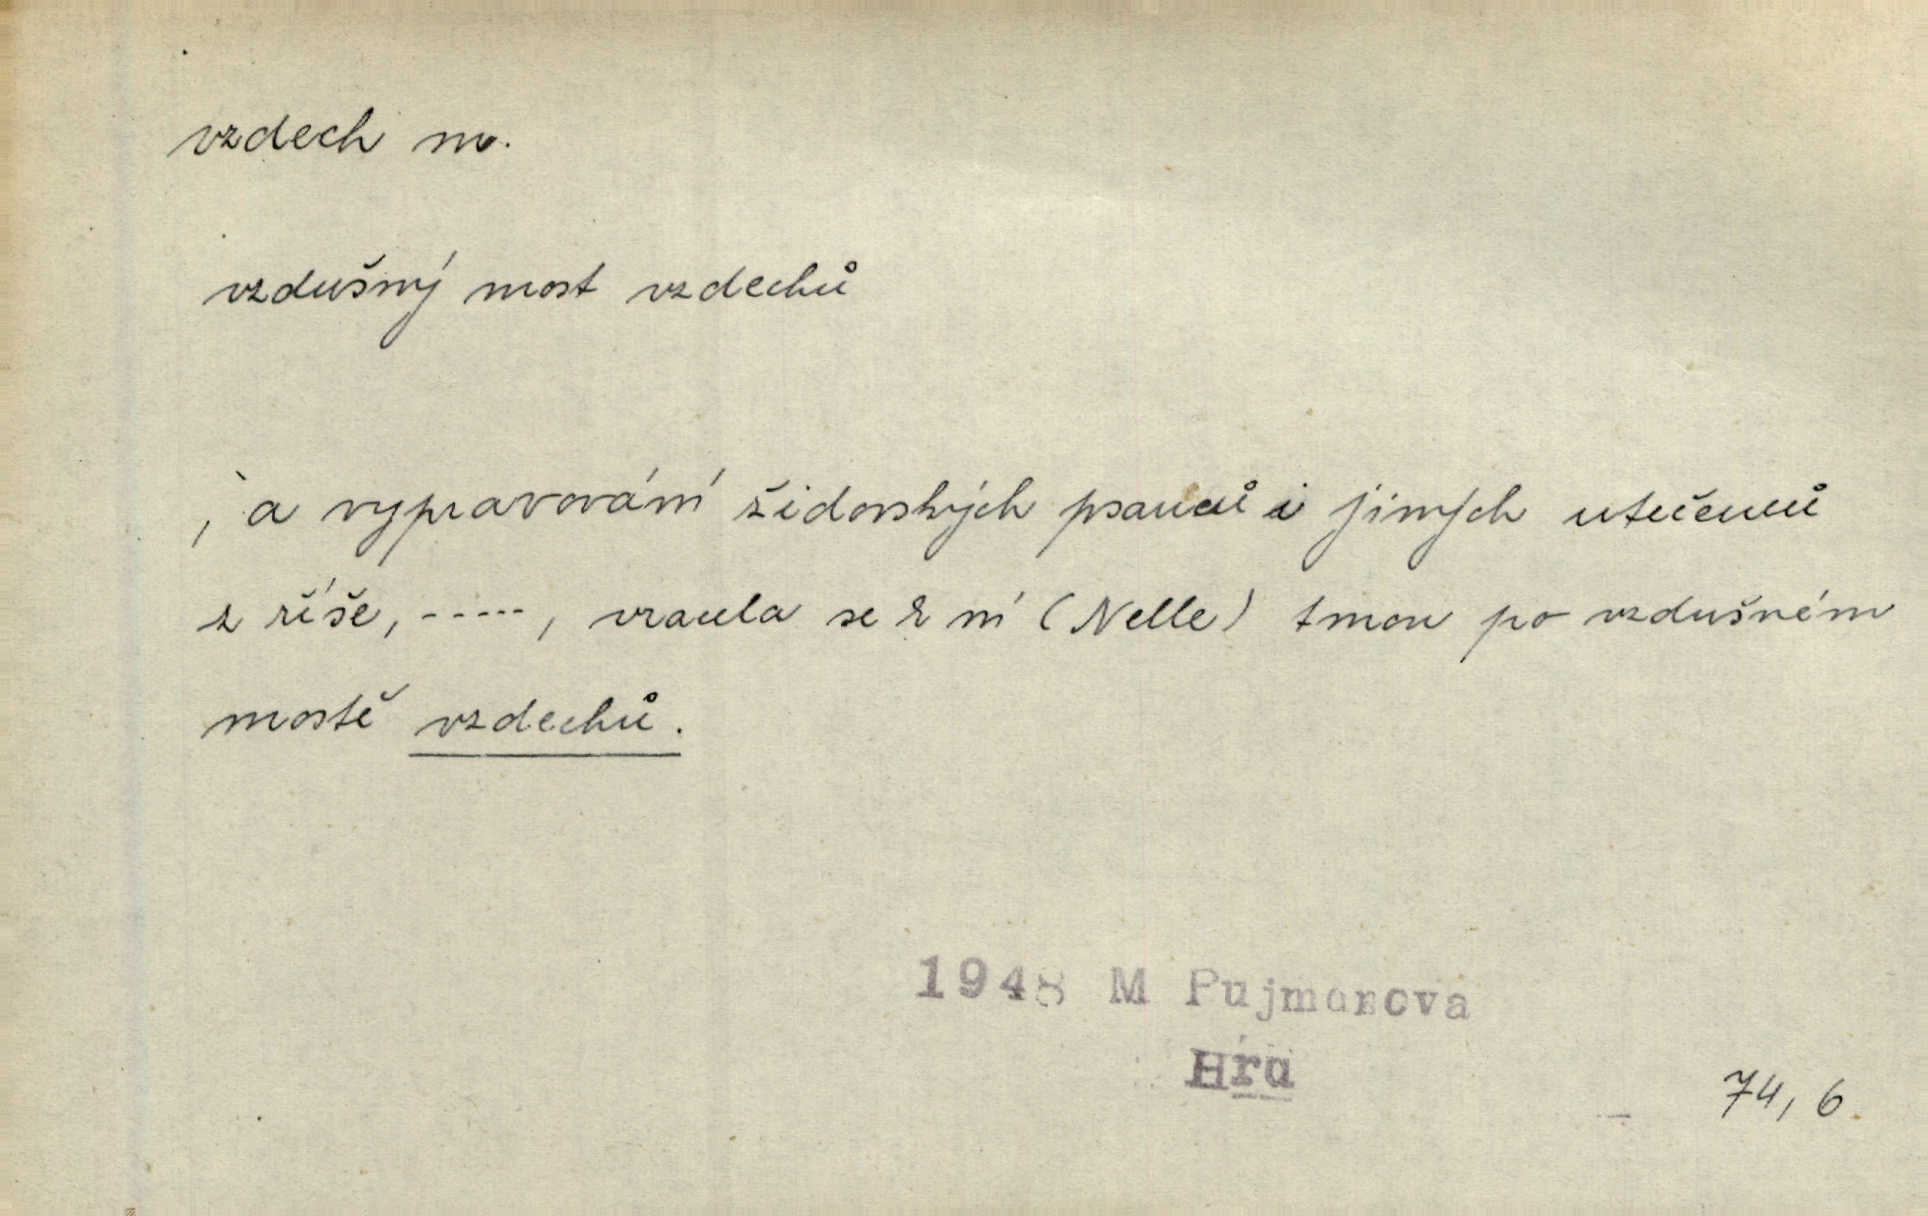 vzdech m.
vzdušný most vzdechů
, a vypravování židovských psanců i jiných utečenců
z říše, -----, vracela se k ní (Nelle) tmou po vzdušném
mostě vzdechů.
1948 M Pujmanova
Hra
74, 6